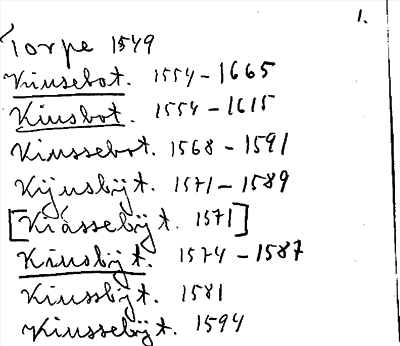 1.
Torpe 1549
Kiusebot. 1554-1665
Kiusbot. 1554-1615
Kiussebot. 1568-1591
Kijusbÿt. 1571-1589
[Kiåssebÿt. 1571]
Kiusbÿt. 1574-1587
Kiussbÿt. 1581
Kiussebÿt. 1594